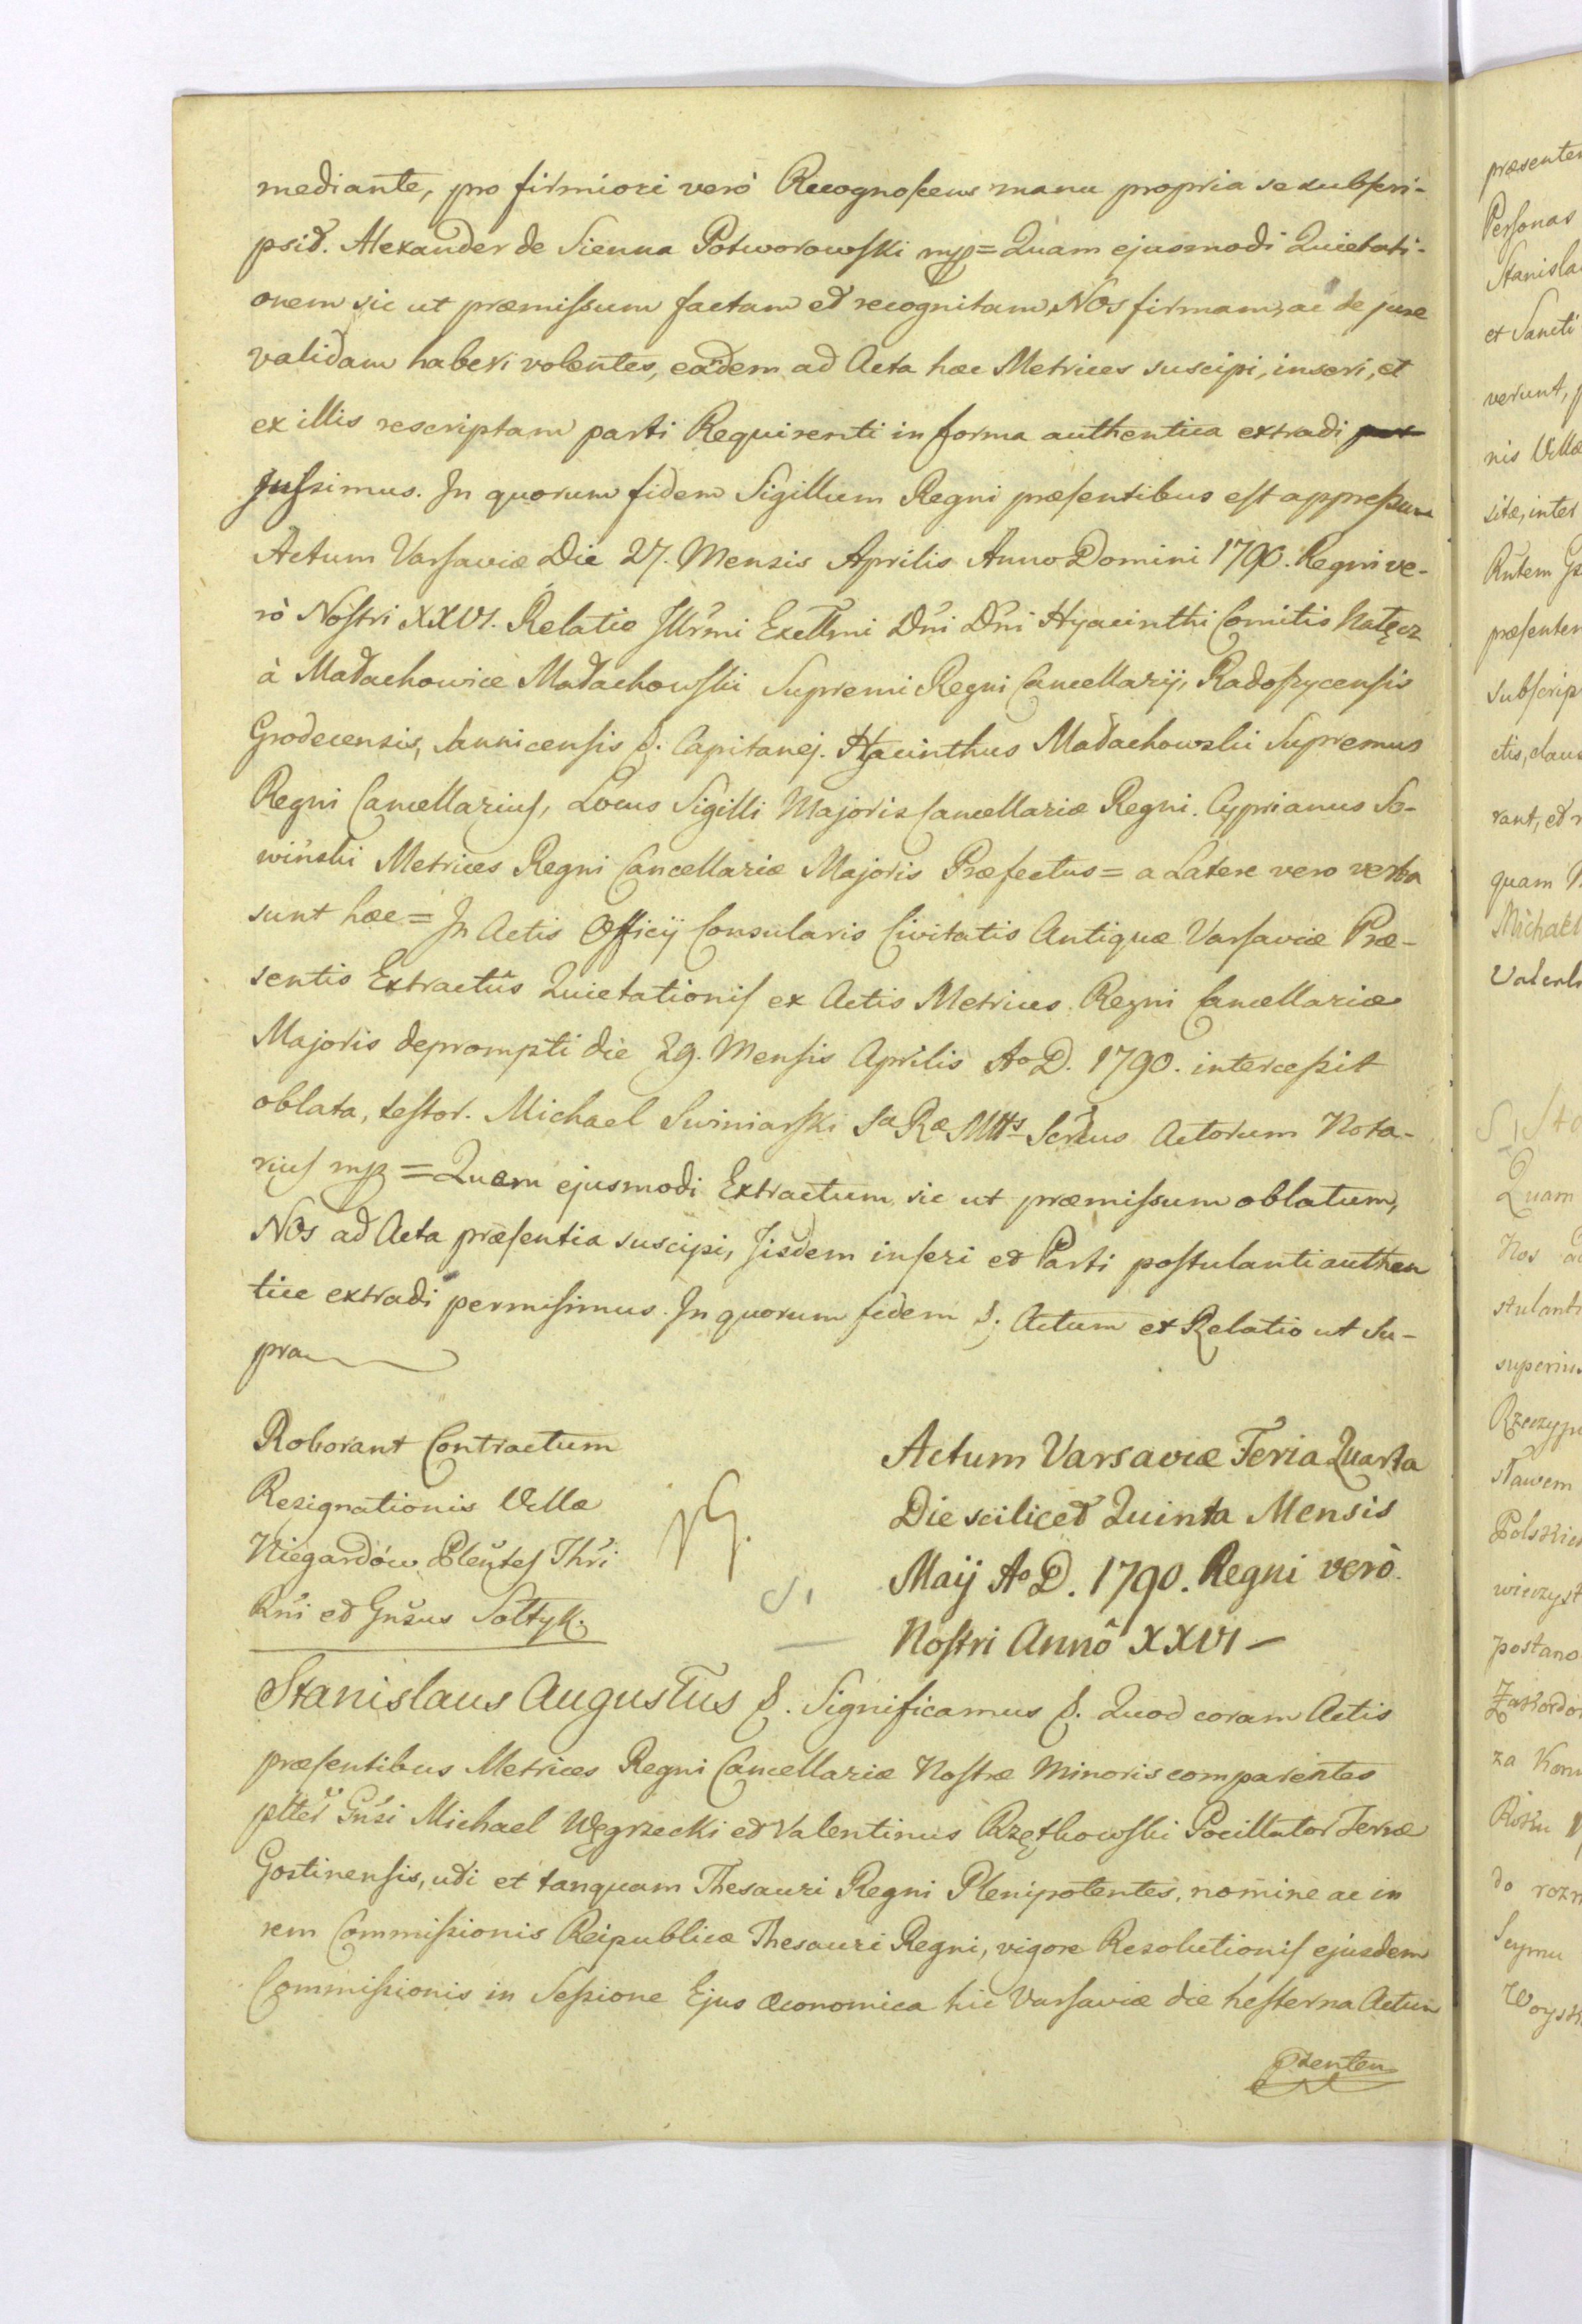 mediante, pro firmiori verò Recognoscens manu propria se subscri-
psit. Alexander de Sienna Potworowski mp = Quam ejusmodi Quietati-
onem sic ut præmissum factam et recognitam, NOs firmam, ac de jure
validam haberi volentes, eadem ad Acta hæc Metrices suscipi, inseri, et
ex illis rescriptam parti Requirenti in forma authentica extradi
Jussimus. In quorum fidem Sigillum Regni præsentibus est appressum
Actum Varsaviæ Die 27. Mensis Aprilis Anno Domini 1790. Regni ve-
rò Nostri XXVI. Relatio Jllr̃mi Excllm̃i Dñi Dñi Hyacinthi Comitis Nałęcz
à Małachowice Małachowski Supremi Regni Cancellarij, Radoszycensis
Grodecensis, Sannicensis &. Capitanej. Hyacinthus Małachowski Supremus
Regni Cancellarius, Locus Sigilli Majoris Cancellariæ Regni. Cyprianus So-
wiński Metrices Regni Cancellariæ Majoris Præfectus = a Latere vero verba
sunt hæc = In Actis Officij Consularis Civitatis Antiquæ Varsaviæ Præ-
sentis Extractûs Quietationis ex Actis Metrices Regni Cancellariæ
Majoris deprompti die 29. Mensis Aprilis Ao D. 1790. intercessit
oblata, testor. Michael Swiniarski Sa Ræ Mtts Scrtus Actorum Nota-
rius mp = Quem ejusmodi Extractum sic ut præmissum oblatum,
NOs ad Acta præsentia suscipi, Jisdem inseri et Parti postulanti authen
tice extradi permisimus. In quorum fidem &. Actum et Relatio ut Su-
pra
Roborant Contractum
Resignationis Villæ
Niegardów Pleñtes Thr̃i
Rñi et Gñsus Sołtyk.
Actum Varsaviæ Feria Quarta
Die scilicet Quinta Mensis
Maij Ao D. 1790. Regni verò
Nostri Annô XXVI
Stanislaus Augustus &. Significamus &. Quod coram Actis
præsentibus Metrices Regni Cancellariæ Nostræ Minoris comparentes
pltter Gñsi Michael Węgrzecki et Valentinus Rzętkowski Pocillator Terræ
Gostinensis, uti et tanquam Thesauri Regni Plenipotentes, nomine ac in
rem Commissionis Reipublicæ Thesauri Regni, vigore Resolutionis ejusdem
Commissionis in Sessione Ejus Œconomica hic Varsaviæ die hesterna Actum
præsenten
Personas
Stanisla
et Sancti
verunt,
nis Villæ
sitæ, inter
præsenten
Subscrip
ctis, claus
rant, et
quam
Michael
Valenti
Quam
Nos
stulanti
superius
Rzeczyp
Polskie
wieczyst
postano
za
do rozn
Seymu
Woysk